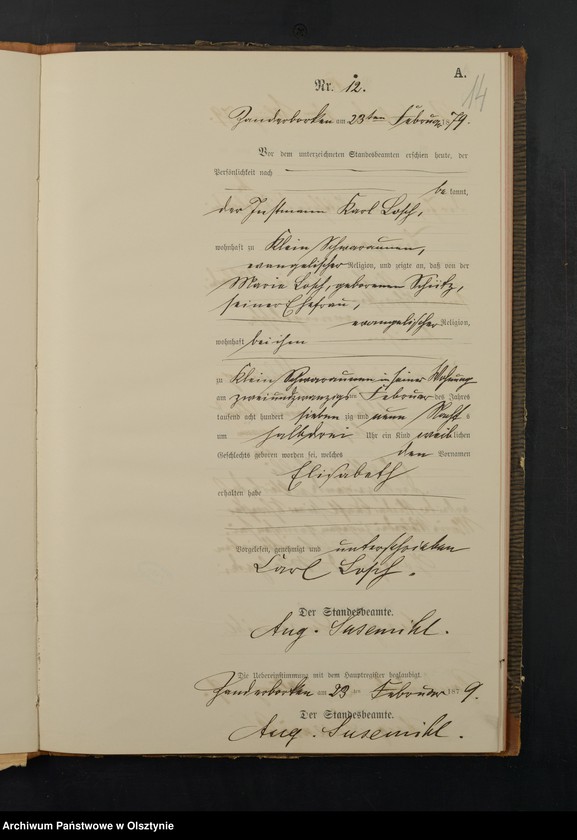 A.
14
Nr. 12.
Zanderborken am 23ten Februar 1879.
Vor dem unterzeichneten Standesbeamten erschien heute, der
Persönlichkeit nach
bekannt,
der Instmann Karl Losch,
wohnhaft zu Klein Schwaraunen,
evangelischer Religion, und zeigte an, daß von der
Maria Losch, geborenen Schütz,
seiner Ehefrau,
evangelischer Religion,
wohnhaft bei ihm
zu Klein Schwaraunen in seiner Wohnung
am zweiundzwanzigsten Februar des Jahres
tausend acht hundert siebenzig und neun Nachts
um halbdrei Uhr ein Kind weiblichen
Geschlechts geboren worden sei, welches den Vornamen
Elisabeth
erhalten habe
Vorgelesen, genehmigt und unterschrieben
Carl Losch.
Der Standesbeamte.
Aug. Susemihl.
Die Uebereinstimmung mit dem Hauptregister beglaubigt.
Zanderborken am 23ten Februar 1879.
Der Standesbeamte.
Aug. Susemihl.
Archiwum Państwowe w Olsztynie